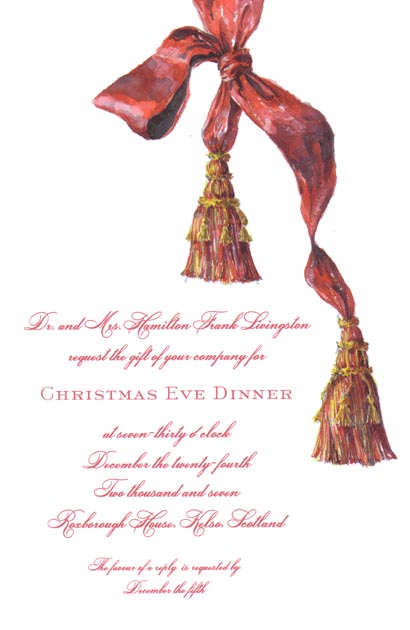 Dr. and Mrs. Hamilton Frank Livingston
request the gift of your company for
CHRISTMAS EVE DINNER
at seven-thirty o'clock
December the twenty-fourth
Two thousand and seven
Roxborough House, Kelso, Scotland
The favour of a reply is requested by
December the fifth